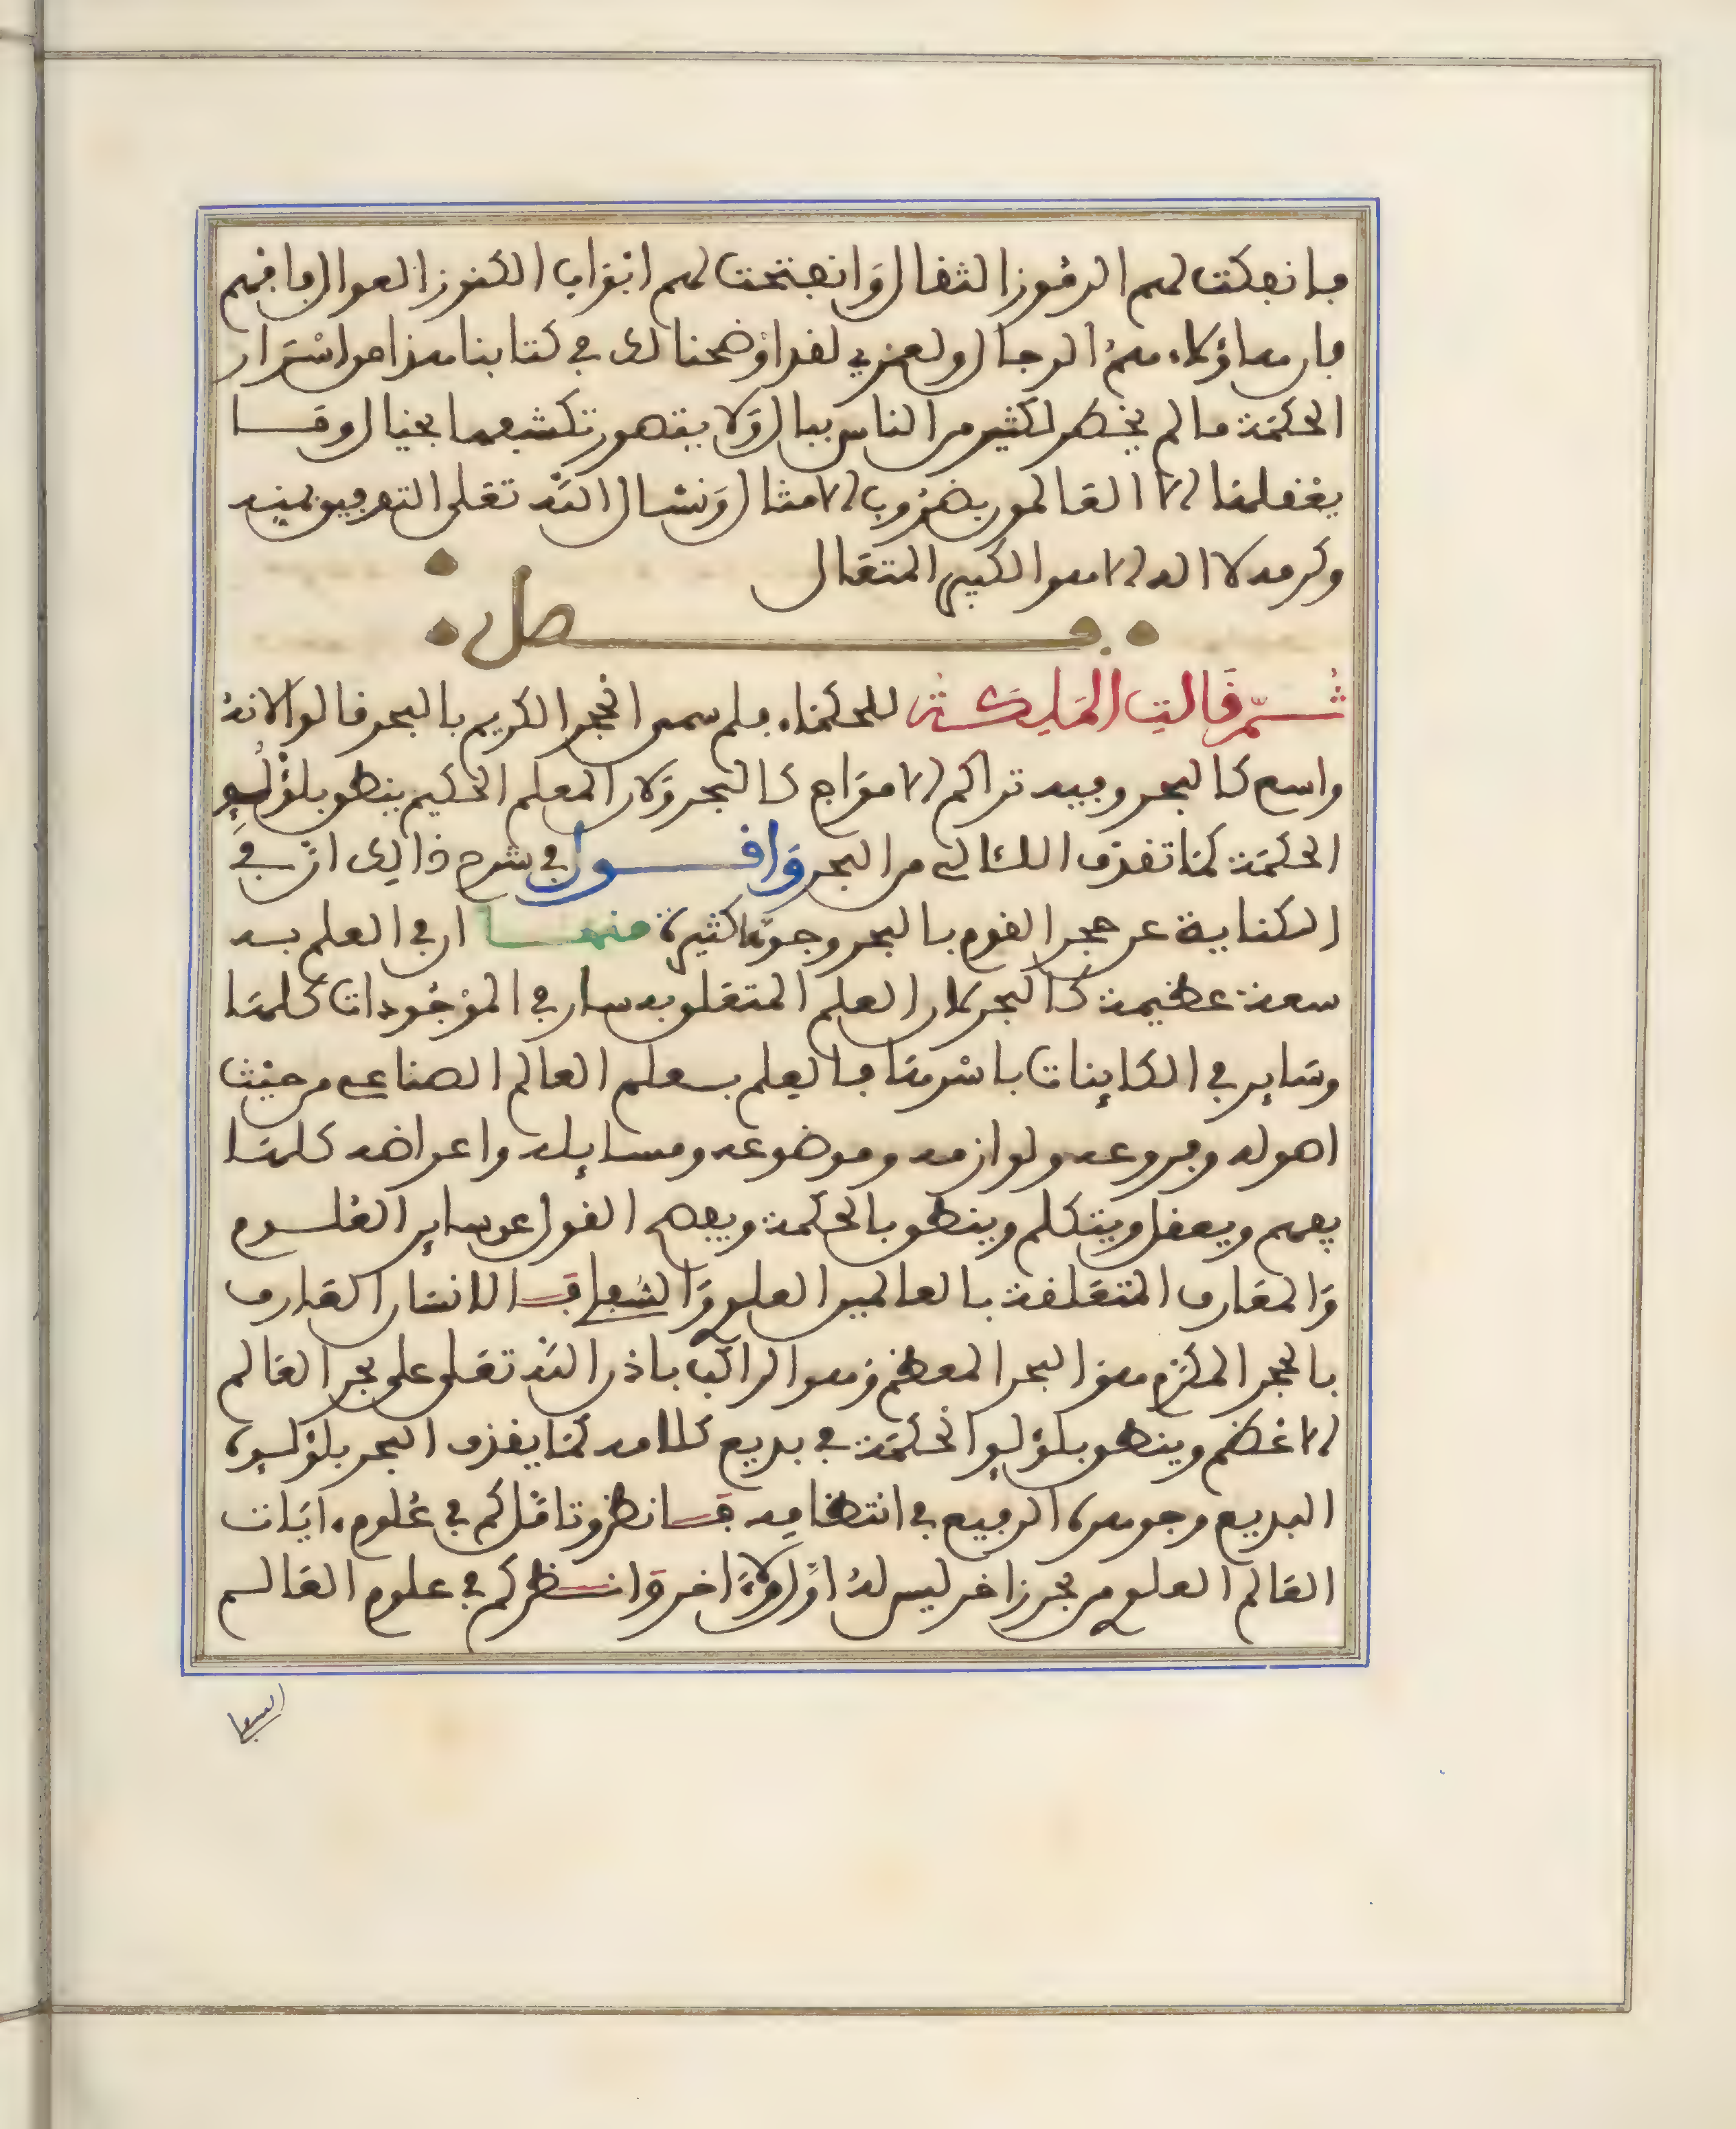 فانفكت لهم الرموز الثقال وانفتحت لهم ابواب الكنوز العوال فافهم
فان هاؤلاء هم الرجال ولعمري لقد اوضحنا لك في كتابنا هذا من اسرار
الحكمة ما لم يخطر لكثير من الناس ببال ولا يتصور تكشفها بخيال وما
يعقلها الا العالمون بضروب الامثال ونسال الله تعلى التوفيق بمنه
وكرمه لا اله الا هو الكبير المتعال
فصل
ثم قالت الملكة للحكماء فلم سموا الحجر الكريم بالبحر قالوا لانه
واسع كالبحر وفيه تراكم الامواج كالبحر ولان المعلم الحكيم ينطق بلؤلؤ
الحكمة كما تقذف اللئالي من البحر واقول في شرح ذالك ان في
الكناية عن حجر القوم بالبحر وجوها كثيرة منها ان في العلم به
سعة عظيمة كالبحر لان العلم المتعلق به سار في الموجودات كلها
وساير في الكاينات باسرها فالعلم بعلم العالم الصناعي من حيث
اصوله وفروعه ولوازمه وموضوعه ومسايله واعراضه كلها
يفهم ويعقل ويتكلم وينطق بالحكمة ويفصح القول عن ساير العلوم
والمعارف المتعلقة بالعالمين العلوي والسفلي فالانسان العارف
بالحجر المكرم هو البحر المعظم وهو الراكب باذن الله تعلى على بحر العالم
الاعظم وينطق بلؤلؤ الحكمة في بديع كلامه كما يقذف البحر بلؤلؤه
البديع وجوهره الرفيع في انتظامه فانظر وتامل كم في علوم ءايات
العالم العلوي من بحر زاخر ليس له اول ولا ءاخر وانظر كم في علوم العالم
السفلي